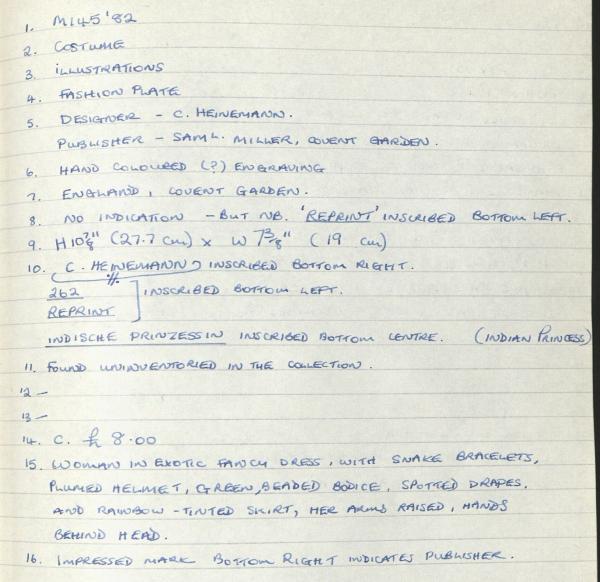 1. M145'82
2. COSTUME
3. ILLUSTRATIONS
4. FASHION PLATE
5. DESIGNER - C. HEINEMANN.
PUBLISHER - SAML. MILLER, COVENT GARDEN.
6. HAND COLOURED (?) ENGRAVING
7. ENGLAND, COVENT GARDEN.
8. NO INDICATION - BUT NB. 'REPRINT' INSCRIBED BOTTOM LEFT.
9. H 10 7/8" (27.7 cm) x W 7 3/8" (19 cm)
10. C. HEINEMANN INSCRIBED BOTTOM RIGHT.
262
REPRINT ] INSCRIBED BOTTOM LEFT.
INDISCHE PRINZESSIN INSCRIBED BOTTOM CENTRE. (INDIAN PRINCESS)
11. FOUND UNINVENTORIED IN THE COLLECTION.
12 -
13 -
14. C. £8.00
15. WOMAN IN EXOTIC FANCY DRESS, WITH SNAKE BRACELETS,
PLUMED HELMET, GREEN, BEADED BODICE, SPOTTED DRAPES,
AND RAINBOW-TINTED SKIRT, HER ARMS RAISED, HANDS
BEHIND HEAD.
16. IMPRESSED MARK BOTTOM RIGHT INDICATES PUBLISHER.